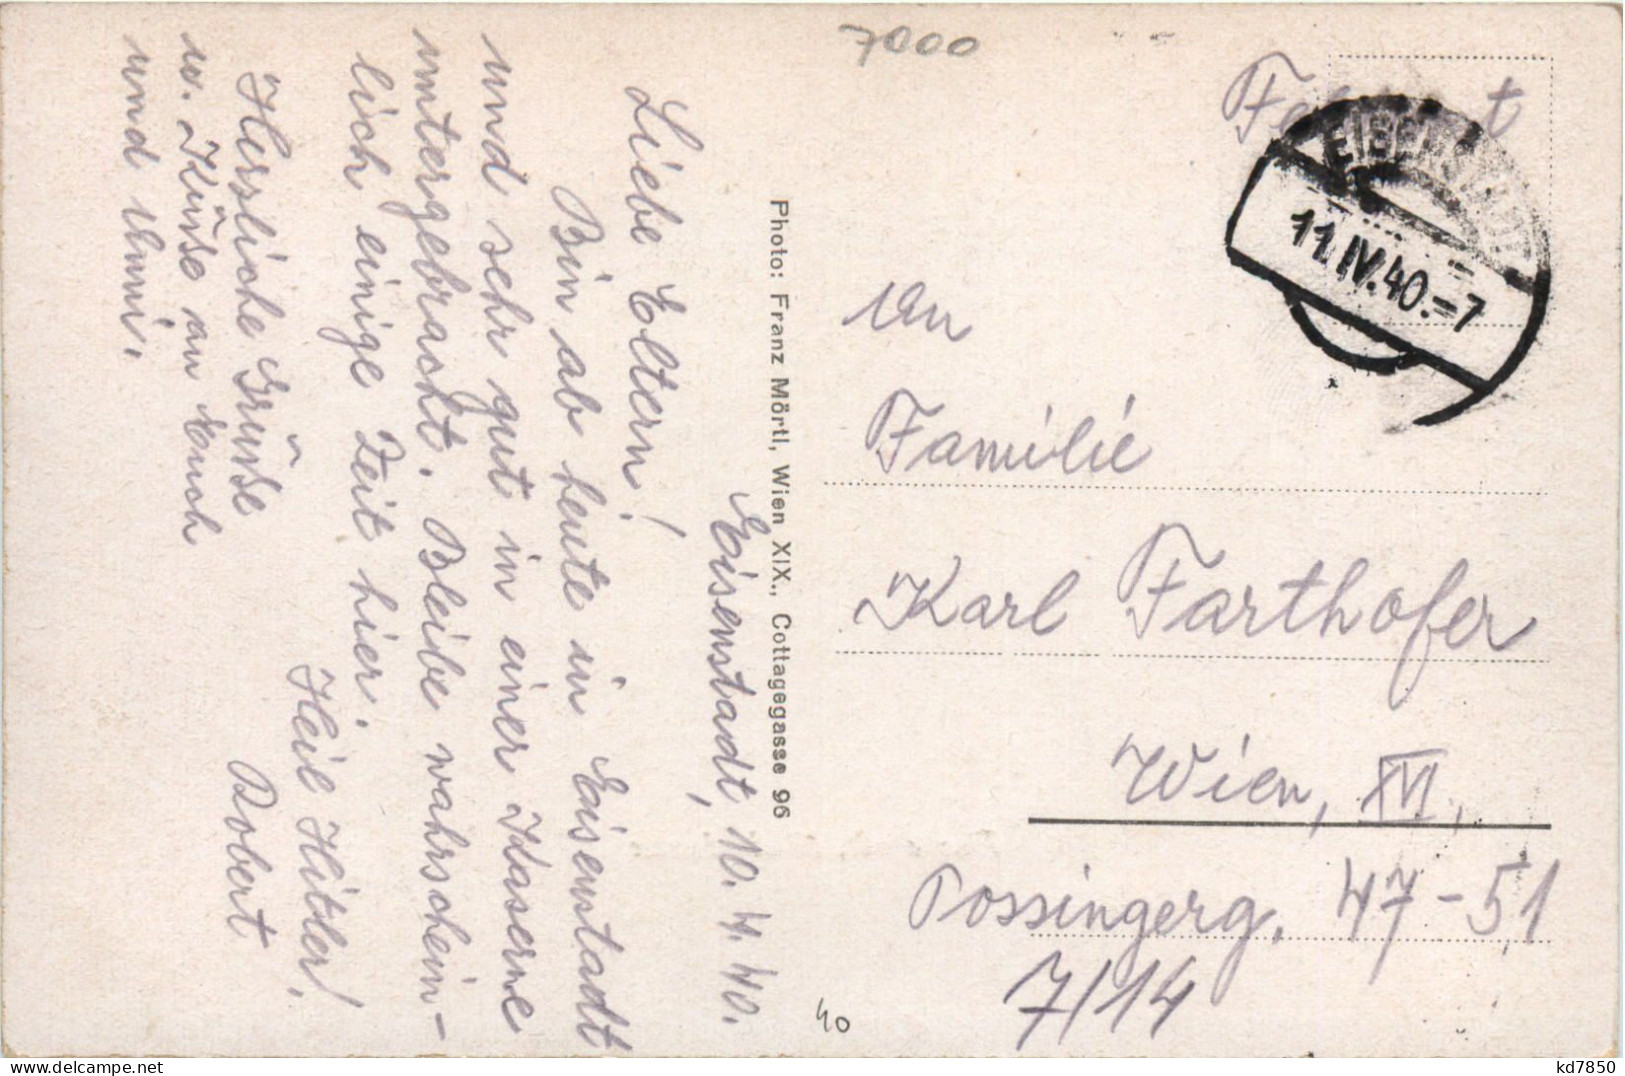 7000
EISENSTADT
11.IV.40.=7
An
Familie
Karl Farthofer
Wien, XVI,
Possingerg. 47-51
7/14
40
Photo: Franz Mörtl, Wien XIX., Cottagegasse 96
Eisenstadt, 10. 4. 40.
Liebe Eltern!
Bin ab heute in Eisenstadt
und sehr gut in einer Kaserne
untergebracht. Bleibe wahrschein-
lich einige Zeit hier.
Heil Hitler!
Herzliche Grüße
Robert
u. Küße an Euch
und
kd7850